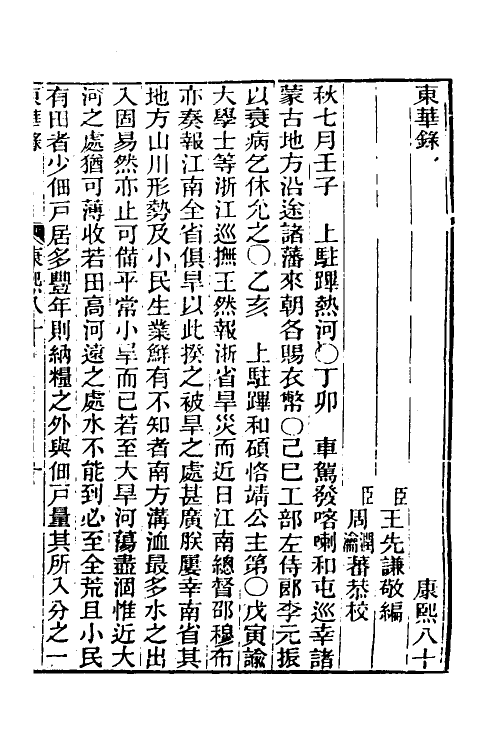 東華錄　康熙八十
臣王先謙敬編
臣周潤蕃瀹蕃恭校
秋七月壬子　上駐蹕熱河〇丁卯　車駕發喀喇和屯巡幸諸
蒙古地方沿途諸藩來朝各賜衣幣〇己巳工部左侍郎李元振
以衰病乞休允之〇乙亥　上駐蹕和碩恪靖公主第〇戊寅諭
大學士等浙江巡撫王然報浙省旱災而近日江南總督邵穆布
亦奏報江南全省俱旱以此揆之被旱之處甚廣朕屢幸南省其
地方山川形勢及小民生業鮮有不知者南方溝洫最多水之出
入固易然亦止可備平常小旱而已若至大旱河蕩盡涸惟近大
河之處猶可薄收若田高河遠之處水不能到必至全荒且小民
有田者少佃戶居多豐年則納糧之外與佃戶量其所入分之一
東華錄　康熙八十　一